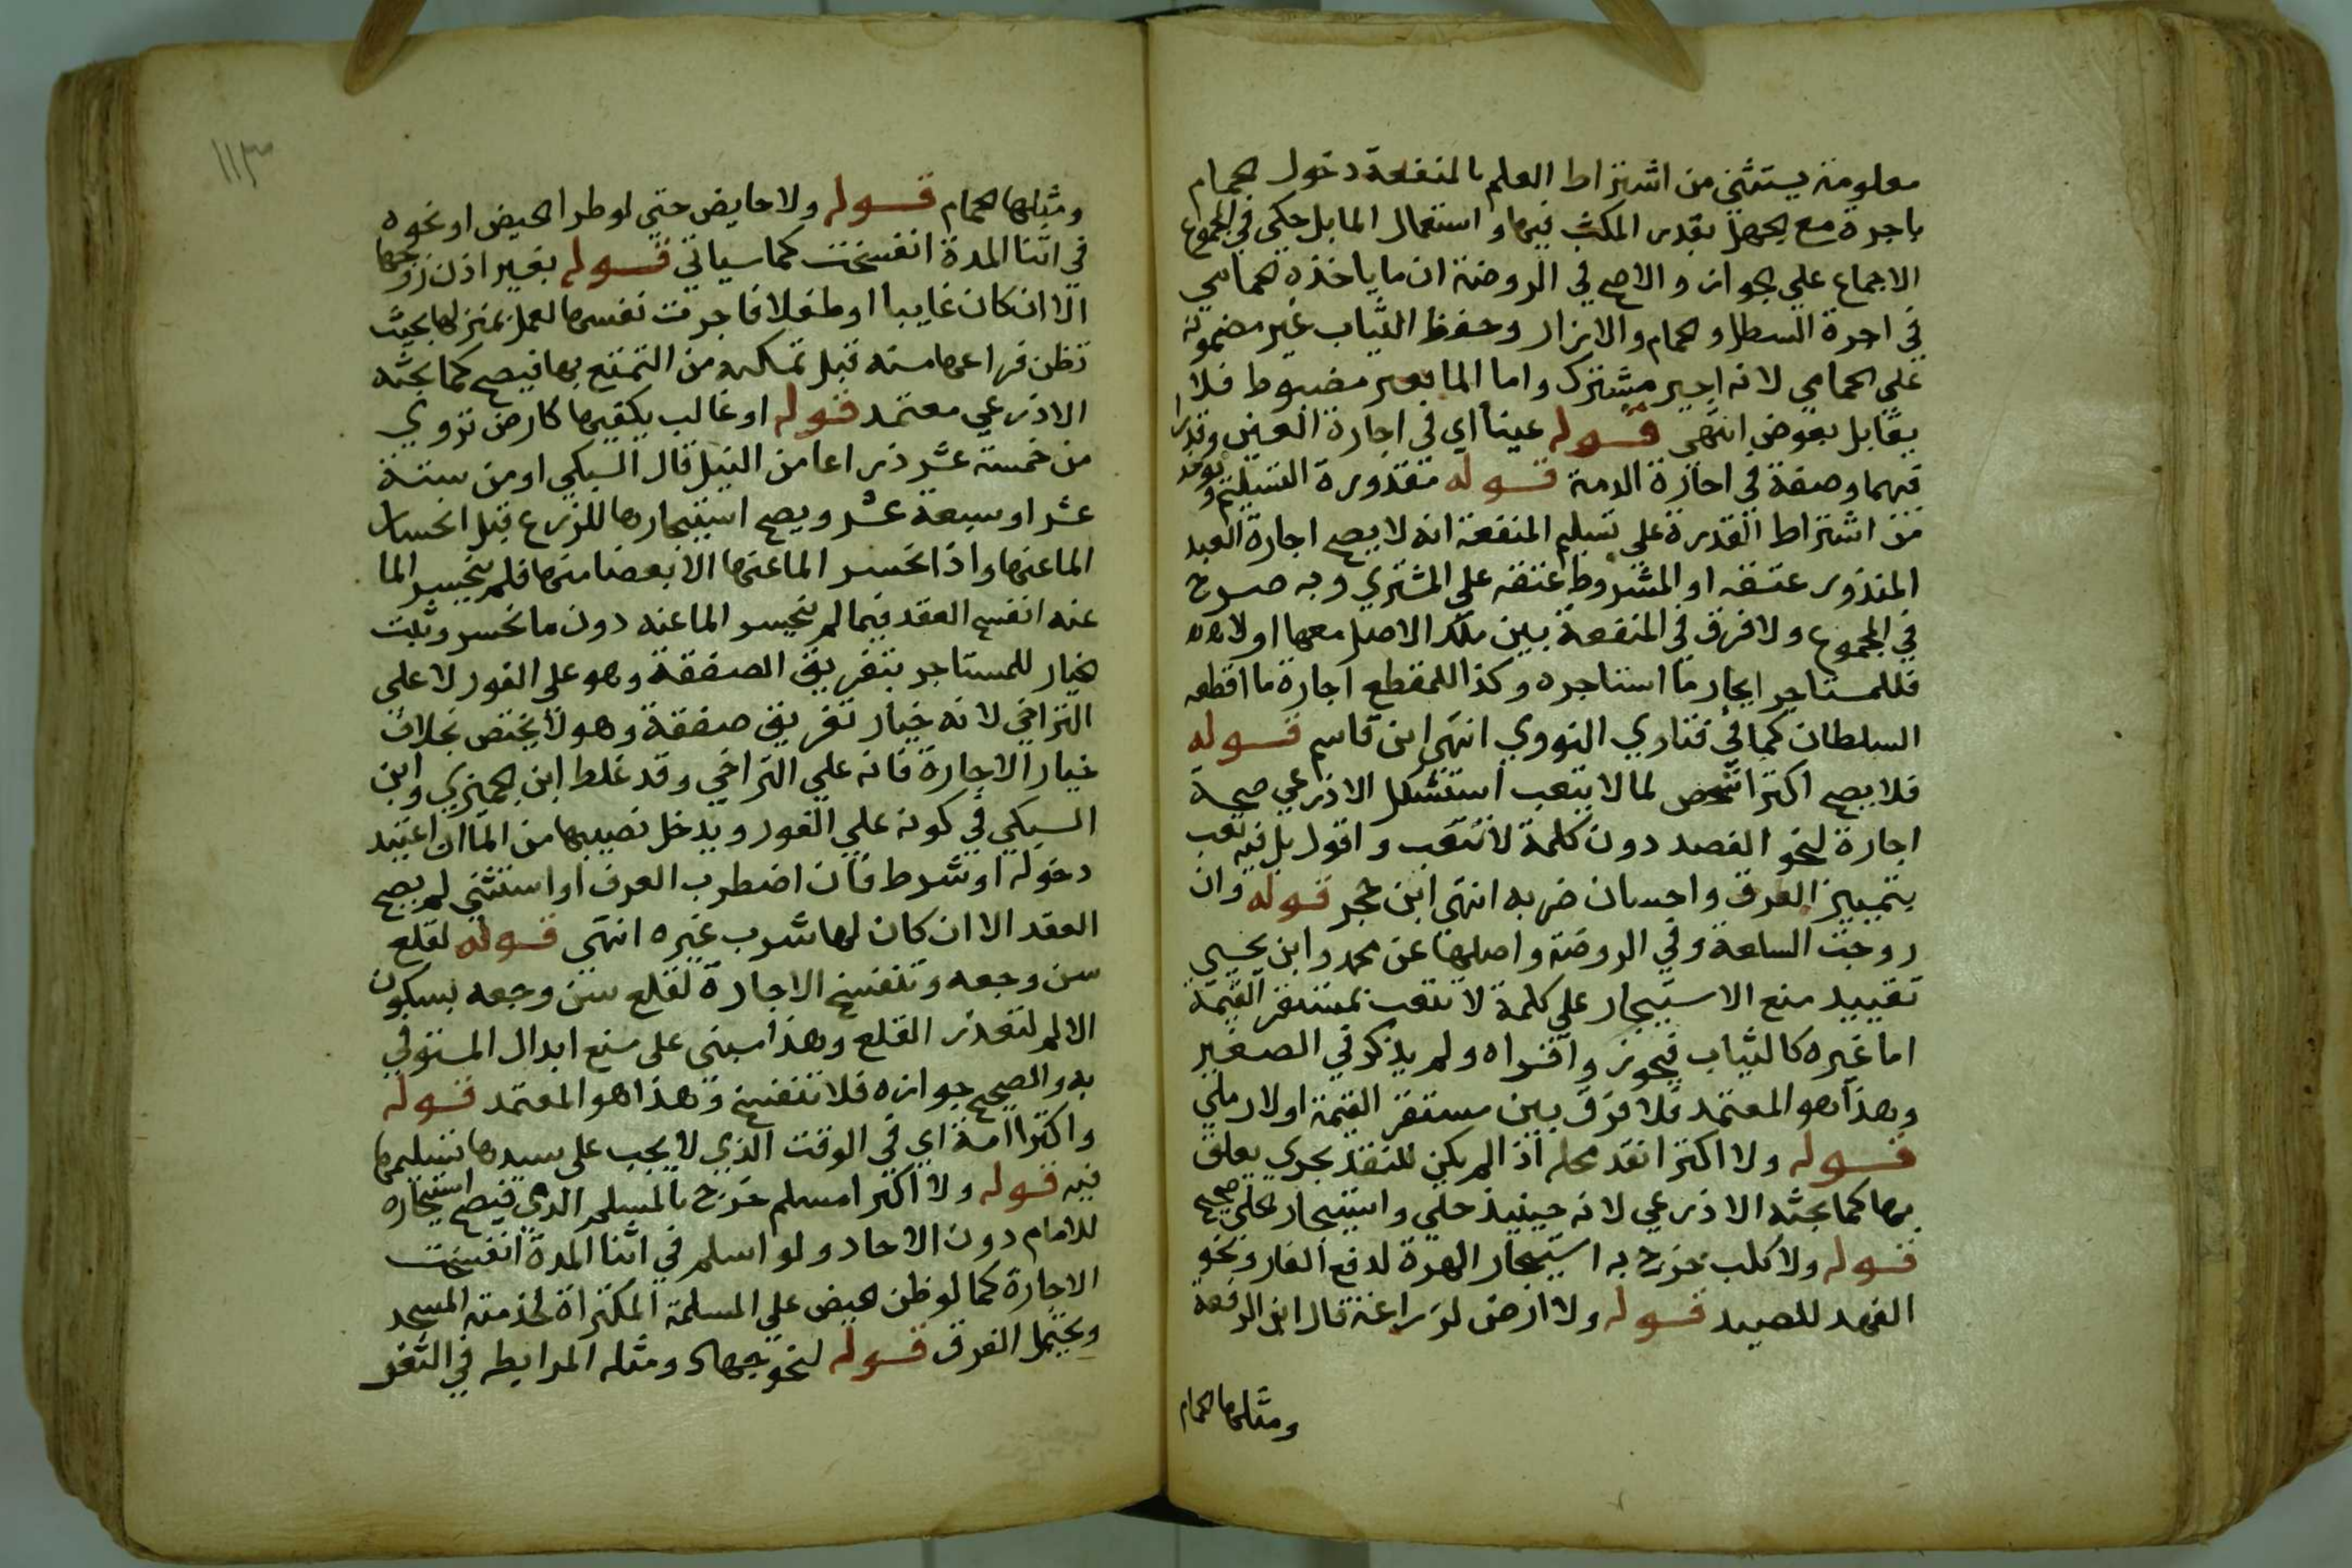 معلومة يستثني من اشتراط العلم بالمنفعة دخول الحمام
باجرة مع الجهل بقدر المكث فيها واستعمال الما بل حكي في المجموع
الاجماع علي الجواز والاصح في الروضة ان ما ياخذه الحمامي
في اجرة السطل والحمام والازار وحفظ الثياب غير مضمونة
علي الحمامي لانه اجير مشترك واما الما بغير مضبوط فلا
يقابل بعوض انتهي قوله عينا اي في اجارة العين وقدرا
فيهما وصفة في اجازة الذمة قوله مقدورة التسليم ويوخذ
من اشتراط القدرة علي تسليم المنفعة انه لا يصح اجارة العبد
المنذور عتقه او المشروط عتقه علي المشتري وبه صرح
في المجموع ولا فرق في المنفعة بين ملك الاصل معها اولا
فللمستاجر ايجار ما استاجره وكذا للمقطع اجارة ما اقطعه
السلطان كما في فتاوي النووي انتهي ابن قاسم قوله
فلا يصح اكترا شخص لما لا يتعب استشكل الاذرعي صحة
اجارة لنحو الفصد دون كلمة لا تتعب واقول بل فيه تعب
بتمييز العرق واحسان ضربه انتهي ابن حجر قوله وان
روجت السلعة وفي الروضة واصلها عن محمد وابن يحيي
تقييد منع الاستيجار علي كلمة لا تتعب بمستقر القيمة
اما غيره كالثياب فيجوز واقراه ولم يذكر في الصغير
وهذا هو المعتمد فلا فرق بين مستقر القيمة اولا رملي
قوله ولا اكترا نقد محله اذا لم يكن للنقد بجري يعلق
بها كما بحثه الاذرعي لانه حينيذ حلي واستيجار الحلي صحيح
قوله ولا كلب خرج به استيجار الهرة لدفع الفار ونحو
الفهد للصيد قوله ولا ارض لزراعة قال ابن الرفعة
ومثلها الحمام
١١٣
ومثلها الحمام قوله ولا حايض حتي لو طرا الحيض او نحوه
في اثنا المدة انفسخت كما سياتي قوله بغير اذن زوجها
الا ان كان غايبا او طفلا فاجرت نفسها لعمل بمنزلها بحيث
تظن فراعها منه قبل تمكنه من التمتع بها فيصح كما بحثه
الاذرعي معتمد قوله او غالب يكفيها كارض تروي
من خمسة عشر ذراعا من النيل قال السبكي او من ستة
عشر او سبعة عشر ويصح استيجارها للزرع قبل انحسار
الما عنها واذا انحسر الما عنها الا بعضا منها فلم ينحسر الما
عنه انفسخ العقد فيما لم ينحسر الما عنه دون ما انحسر وثبت
الخيار للمستاجر بتفريق الصفقة وهو علي الفور لا علي
التراخي لانه خيار تفريق صفقة وهو لا يختص بخلاف
خيار الاجارة فانه علي التراخي وقد غلط ابن الجميزي وابن
السبكي في كونه علي الفور ويدخل نصيبها من الما ان اعتيد
دخوله او شرط فان اضطرب العرف او استثني لم يصح
العقد الا ان كان لها شرب غيره انتهي قوله لقلع
سن وجعه وتنفسخ الاجارة لقلع سن وجعه بسكون
الالم لتعذر القلع وهذا مبني علي منع ابدال المستوفي
به والصحيح جوازه فلا تنفسخ وهذا هو المعتمد قوله
واكترا امة اي في الوقت الذي لا يجب علي سيدها تسليمها
فيه قوله ولا اكترا مسلم خرج بالمسلم الذمي فيصح استيجاره
للامام دون الاحاد ولو اسلم في اثنا المدة انفسخت
الاجارة كما لو ظن الحيض علي المسلمة المكتراة لخدمة المسجد
ويحتمل الفرق قوله لنحو جهاد ومثله المرابطه في الثغر